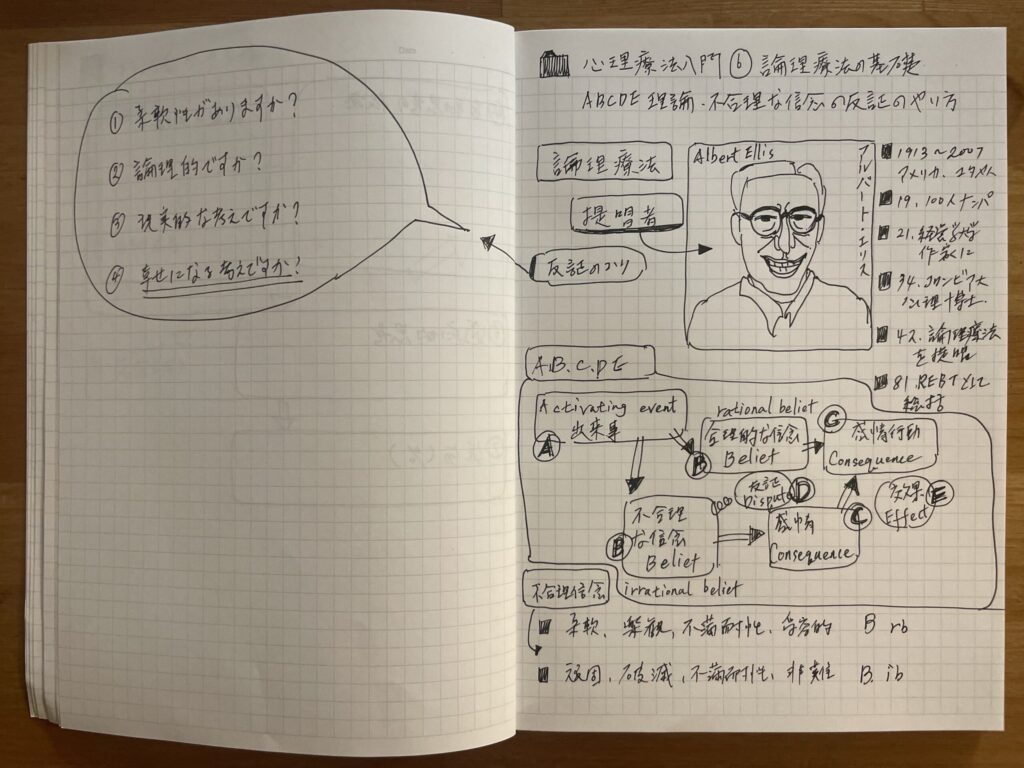 Date
① 柔軟性がありますか?
② 論理的ですか?
③ 現実的な考えですか?
④ 幸せになる考えですか?
心理療法入門⑥ 論理療法の基礎
ABCDE理論・不合理な信念の反証のやり方
論理療法
提唱者
反証のコツ
Albert Ellis
アルバート・エリス
1913〜2007
アメリカ. ユダヤ人
19. 100人ナンパ
21. 経営学学
作家に
34. コロンビア大
心理博士.
42. 論理療法
を提唱
81. REBTとして
総括
A.B.C.DE
Activating event
出来事
A
rational belief
合理的な信念
Belief
B
G
感情行動
Consequence
反証
Dispute
D
効果
Effect
E
不合理
な信念
Belief
B
感情
Consequence
C
irrational belief
不合理信念
柔軟、楽観、不満耐性、受容的 B rb
頑固、破滅、不満耐性、非難 B. ib